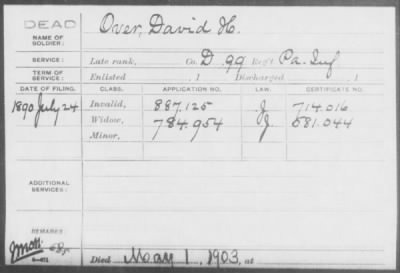 DEAD
NAME OF SOLDIER: Over, David H.
SERVICE: Late rank, Co. D 99 Reg't Pa. Inf
TERM OF SERVICE: Enlisted , 1 Discharged , 1
DATE OF FILING. CLASS. APPLICATION NO. LAW. CERTIFICATE NO.
1890 July 24 Invalid, 887.125 J 714.016
Widow, 784.954 J 581.044
Minor,
ADDITIONAL SERVICES:
REMARKS:
Died May 1, 1903, at